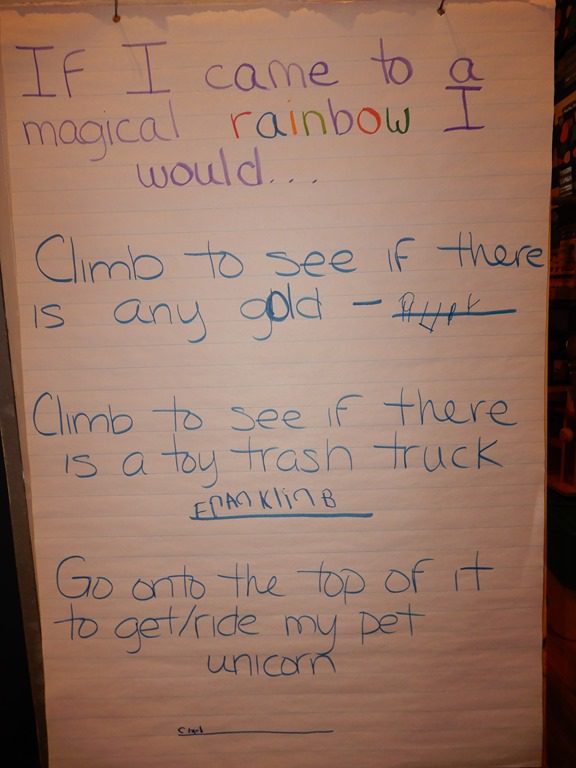 If I came to a
magical rainbow I
would...
Climb to see if there
is any gold -
Climb to see if there
is a toy trash truck
FrAnklin B
Go onto the top of it
to get/ride my pet
unicorn